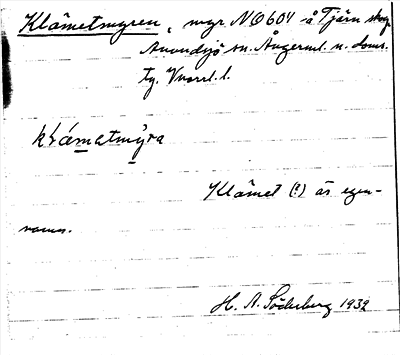 Klämetmyren, myr NO604 å Tjärn skog
Anundsjö sn. Ångerml. n. doms.
tg. Vnorrl. l.
klámatmy̍ra
Klämet (!) är egen-
namn.
H. A. Söderberg 1932